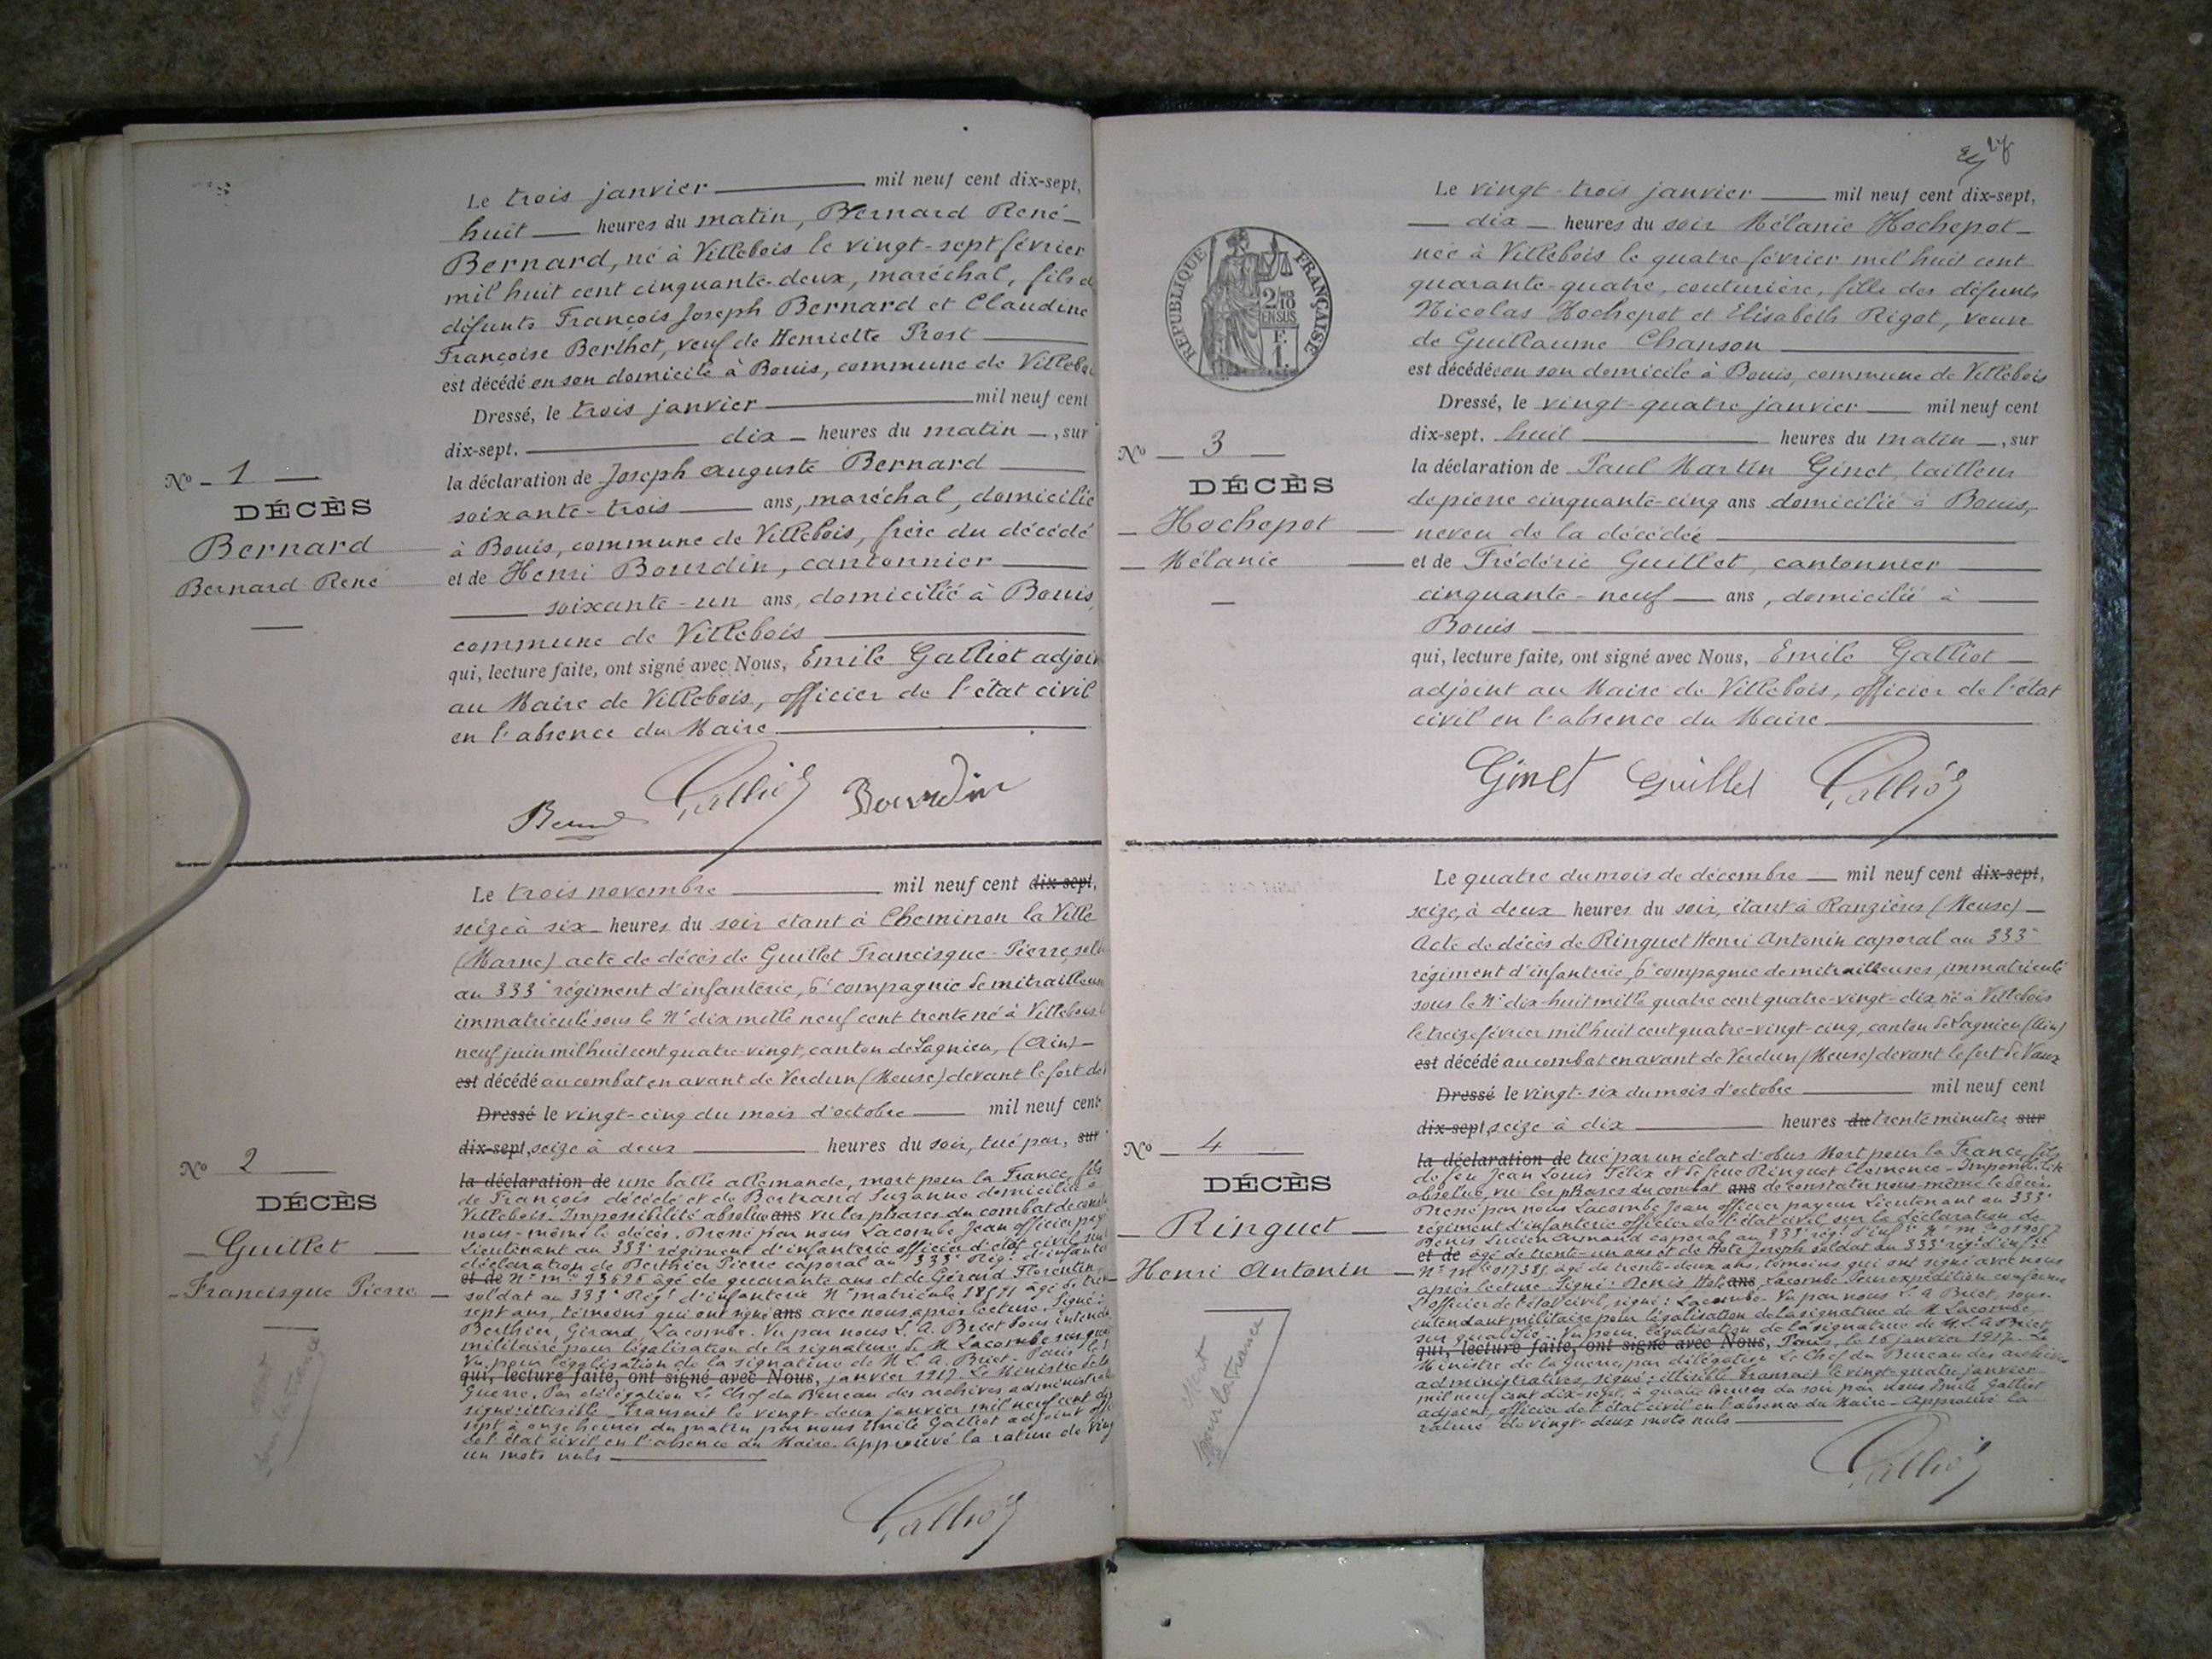 Le trois janvier mil neuf cent dix-sept,
huit heures du matin, Bernard René
Bernard, né à Villebois le vingt-sept février
mil huit cent cinquante-deux, maréchal, fils d
défunts François Joseph Bernard et Claudine
Françoise Berthet, veuf de Henriette Prost
est décédé en son domicile à Bouis, commune de Villeboi
Dressé, le trois janvier mil neuf cent
dix-sept. dix heures du matin, sur
la déclaration de Joseph Auguste Bernard
soixante-trois ans, maréchal, domicilié
à Bouis, commune de Villebois, frère du décédé
et de Henri Bourdin, cantonnier
soixante-un ans, domicilié à Bouis,
commune de Villebois
qui, lecture faite, ont signé avec Nous, Emile Galliot adjoin
au Maire de Villebois, officier de l'état civil
en l'absence du Maire
N° 1
DÉCÈS
Bernard
Bernard René
Galliot Bourdin
Le trois novembre mil neuf cent dix-sept,
seize à six heures du soir étant à Cheminon la Ville
(Marne) acte de décès de Guillet Francisque-Pierre, sol
au 333e régiment d'infanterie, 6e compagnie de mitrailleus
immatriculé sous le N° dix mille neuf cent trente né à Villebois
neuf juin mil huit cent quatre-vingt, canton de Lagnieu, (Ain)
est décédé au combat en avant de Verdun (Meuse) devant le fort de
Dressé le vingt-cinq du mois d'octobre mil neuf cent
dix-sept, seize à deux heures du soir, tué par, sur
la déclaration de une balle allemande, mort pour la France, fils
de François décédé et de Bertrand Suzanne domiciliée à
Villebois. Impossibilité absolue ans vu les phases du combat de const
nous-même le décès. Dressé par nous Lacombe Jean officier pay
Lieutenant au 333e régiment d'infanterie officier d'état civil, sur
déclaration de Berthier Pierre caporal au 333e Régt d'infante
et de N° mle 13696 âgé de quarante ans et de Gérard Florentin
soldat au 333e Régt d'infanterie N° matricule âgé de tren
sept ans, témoins qui ont signé ans avec nous après lecture. Signé:
Berthier, Girard, Lacombe. Vu par nous L. A. Bricet Sous intenda
militaire pour légalisation de la signature de M Lacombe sus qua
Vu pour légalisation de la signature de M L. A. Bricet - Paris le
qui, lecture faite, ont signé avec Nous, janvier 1917. Le Ministre de la
Guerre. Par délégation Le Chef du Bureau des archives administrat
signé: illisible. Transcrit le vingt-deux janvier mil neuf cent dix
sept à onze heures du matin par nous Emile Galliot adjoint offi
de l'état civil en l'absence du Maire. Approuvé la rature de ving
un mots nuls
N° 2
DÉCÈS
Guillet
Francisque Pierre
Mort
pour la France
Galliot
Le vingt-trois janvier mil neuf cent dix-sept,
dix heures du soir Mélanie Hochepot
née à Villebois le quatre février mil huit cent
quarante-quatre, couturière, fille des défunts
Nicolas Hochepot et Elisabeth Rigot, veuve
de Guillaume Chanson
est décédée en son domicile à Bouis, commune de Villebois
Dressé, le vingt-quatre janvier mil neuf cent
dix-sept. huit heures du matin, sur
la déclaration de Paul Martin Ginet, tailleur
de pierre cinquante-cinq ans domicilié à Bouis,
neveu de la décédée
et de Frédéric Guillet, cantonnier
cinquante-neuf ans, domicilié à
Bouis
qui, lecture faite, ont signé avec Nous, Emile Galliot
adjoint au Maire de Villebois, officier de l'état
civil en l'absence du Maire
RÉPUBLIQUE FRANÇAISE
2/10
EN SUS
F.
1.
N° 3
DÉCÈS
Hochepot
Mélanie
Ginet Guillet Galliot
Le quatre du mois de décembre mil neuf cent dix-sept,
seize, à deux heures du soir, étant à Ranzières (Meuse)
Acte de décès de Ringuet Henri Antonin caporal au 333e
régiment d'infanterie, 6e compagnie de mitrailleuses, immatriculé
sous le N° dix-huit mille quatre cent quatre-vingt-dix, né à Villebois
le treize février mil huit cent quatre-vingt-cinq, canton de Lagnieu (Ain)
est décédé au combat en avant de Verdun (Meuse) devant le fort de Vaux
Dressé le vingt-six du mois d'octobre mil neuf cent
dix-sept, seize à dix heures du trente minutes sur
la déclaration de tué par un éclat d'obus Mort pour la France, fils
de feu Jean Louis Félix et de feue Ringuet Clémence - Impossibilité
absolue, vu les phases du combat ans de constater nous-même le décès.
Dressé par nous Lacombe Jean officier payeur Lieutenant au 333e
régiment d'infanterie officier de l'état civil, sur la déclaration de
Denis Lucien Armand caporal au 333e régt d'infie N° mle
et de âgé de trente-un ans et de Hote Joseph soldat au 333e régt d'infie
N° mle 017385 âgé de trente-deux ans, témoins qui ont signé avec nous
après lecture. Signé: Denis Hote ans Lacombe. Pour expédition conforme
L'officier de l'état civil, signé: Lacombe. Vu par nous L. A Bricet, sous-
intendant militaire pour légalisation de la signature de M. Lacombe,
sus qualifié. Vu pour légalisation de la signature de M. L. A Bricet,
qui, lecture faite, ont signé avec Nous, Paris, le 16 janvier 1917. Le
Ministre de la Guerre, par délégation Le Chef du Bureau des archives
administratives, signé: illisible Transcrit le vingt-quatre janvier
mil neuf cent dix-sept, à quatre heures du soir par nous Emile Galliot
adjoint, officier de l'état civil en l'absence du Maire - Approuvé la
rature de vingt-deux mots nuls
N° 4
DÉCÈS
Ringuet
Henri Antonin
Mort
pour la France
Galliot